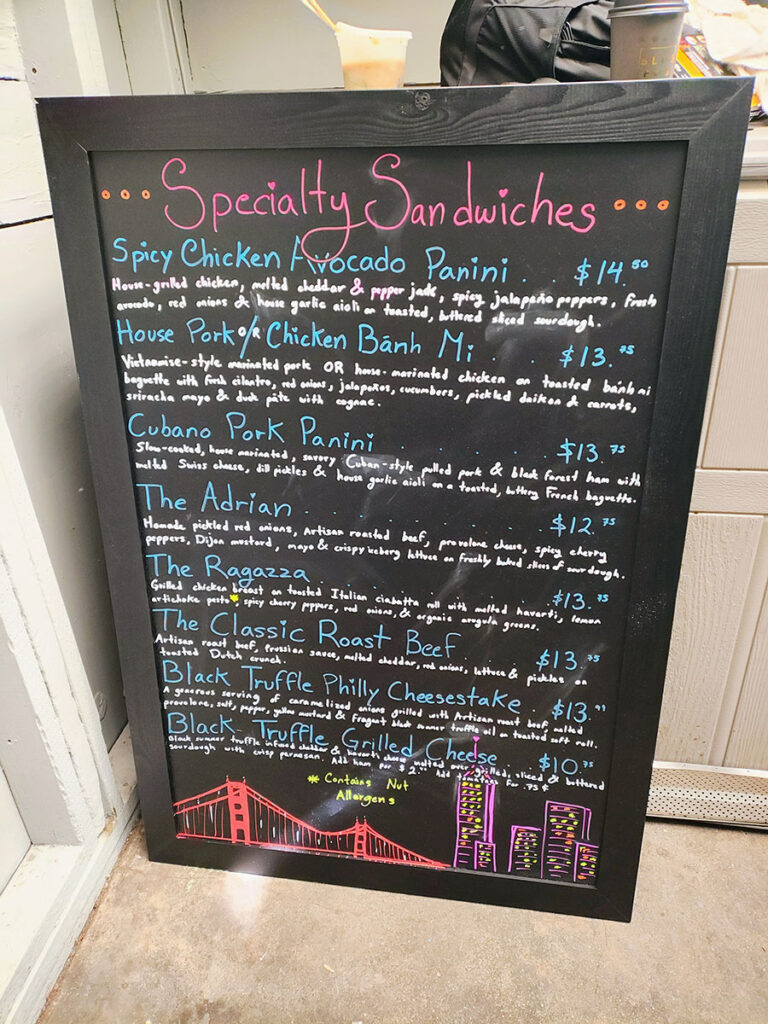 Specialty Sandwiches
Spicy Chicken Avocado Panini . $14.50
House-grilled chicken, melted cheddar & pepper jack, spicy jalapeño peppers, fresh
avocado, red onions & house garlic aioli on toasted, buttered sliced sourdough.
House Pork OR/ Chicken Bánh Mi . . . $13.75
Vietnamise-style marinated pork OR house-marinated chicken on toasted bánh mi
baguette with fresh cilantro, red onions, jalapeños, cucumbers, pickled daikon & carrots,
sriracha mayo & duck pâte with cognac.
Cubano Pork Panini . . . . . $13.75
Slow-cooked, house marinated, savory Cuban-style pulled pork & black forest ham with
melted Swiss cheese, dill pickles & house garlic aioli on a toasted, buttery French baguette.
The Adrian . . . . . . . $12.75
Homade pickled red onions, Artisan roasted beef, provolone cheese, spicy cherry
peppers, Dijon mustard, mayo & crispy iceberg lettuce on freshly baked slices of sourdough.
The Ragazza . . . . . . $13.75
Grilled chicken breast on toasted Italian ciabatta roll with melted havarti, lemon
artichoke pesto*, spicy cherry peppers, red onions, & organic arugula greens.
The Classic Roast Beef . . . $13.75
Artisan roast beef, Prussian sauce, melted cheddar, red onions, lettuce & pickles on
toasted Dutch crunch.
Black Truffle Philly Cheesestake . $13.99
A generous serving of caramelized onions grilled with Artisan roast beef, melted
provolone, salt, pepper, yellow mustard & fragrant black summer truffle oil on toasted soft roll.
Black Truffle Grilled Cheese . . $10.75
Black summer truffle infused cheddar & havarti cheese melted over grilled, sliced & buttered
sourdough with crisp parmesan. Add ham for $2.00 Add tomatoes for .75 ¢
* Contains Nut
Allergens